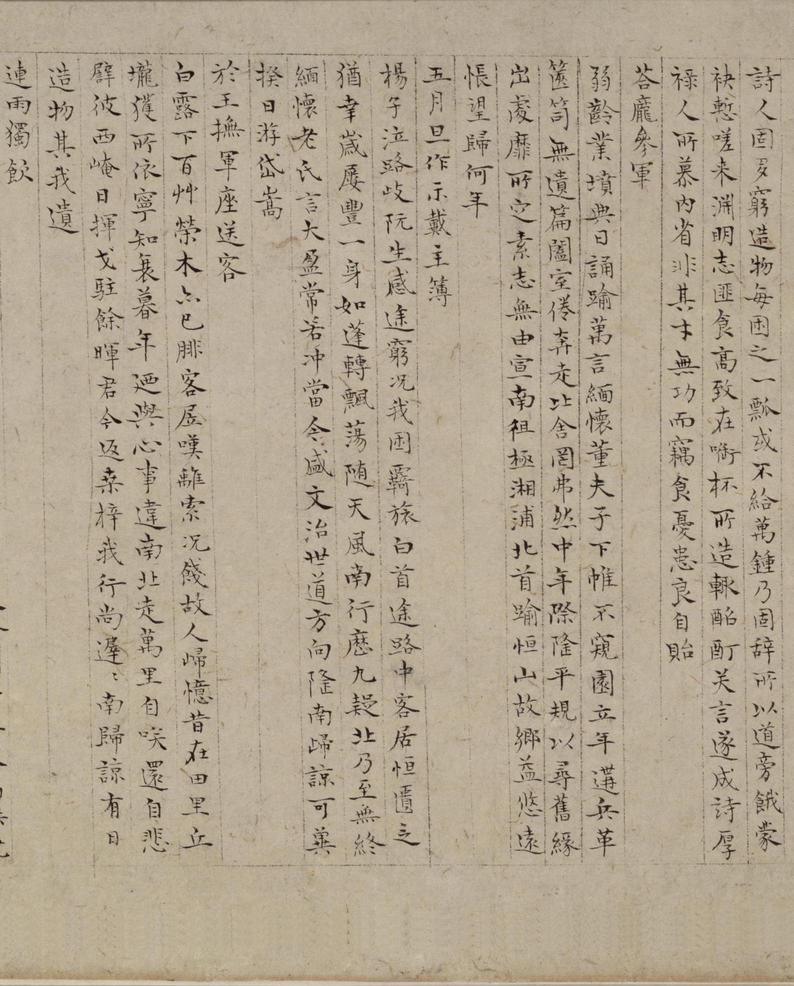 詩人固多窮造物每困之一瓢或不給萬鍾乃固辞所以道旁餓蒙
袂慙嗟来淵明志匪食高致在銜杯所造輒酩酊关言遂成詩厚
禄人所慕内省非其才無功而竊食憂患良自貽
荅龐叅軍
弱齡業墳典日誦踰萬言緬懷董夫子下帷不窺園立年遘兵革
篋笥無遺篇闔室倦奔走北舍罔弗然中年際隆平規以尋舊緣
出處靡所定素志無由宣南徂極湘浦北首踰恒山故鄉益悠遠
悵望歸何年
五月旦作示戴主簿
楊子泣路歧阮生感途窮况我困羇旅白首途路中客居恒匱乏
猶幸歳屡豐一身如蓬轉飄蕩随天風南行歷九疑北乃至無終
緬懷老氏言大盈常若冲當今盛文治世道方向隆南歸諒可冀
揆日游岱嵩
於王撫軍座送客
白露下百艸榮木亦已腓客居嘆離索况餞故人歸憶昔在田里丘
壠獲所依寧知衰暮年廼與心事違南北走萬里自咲還自悲
辟彼西崦日揮戈駐餘暉君今返桑梓我行尚遲〻南歸諒有日
造物其我遺
連雨獨飲